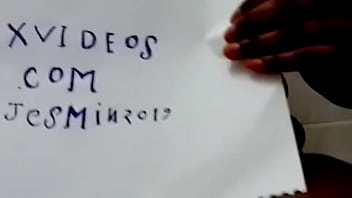 XVIDEOS
.COM
JCSMin2019